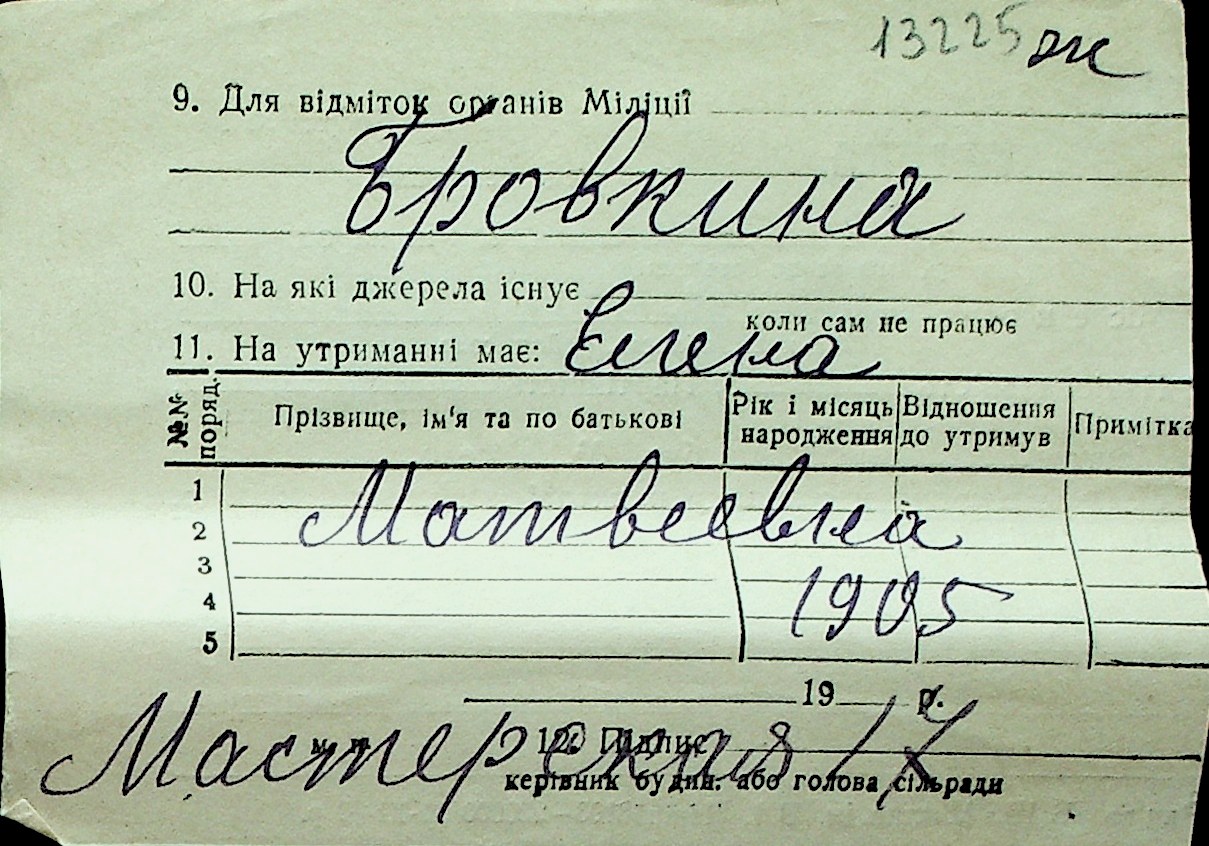 13225 эк
9. Для відміток органів Міліції
Бровкина
10. На які джерела існує
коли сам не працює
11. На утриманні має: Елена
№№ поряд. Прізвище, ім'я та по батькові Рік і місяць народження Відношення до утримув Примітка
1
Матвеевна
2
3
1905
4
5
19 р.
Мастерская 17
м. п. 12. Підпис
керівник будин. або голова сільради